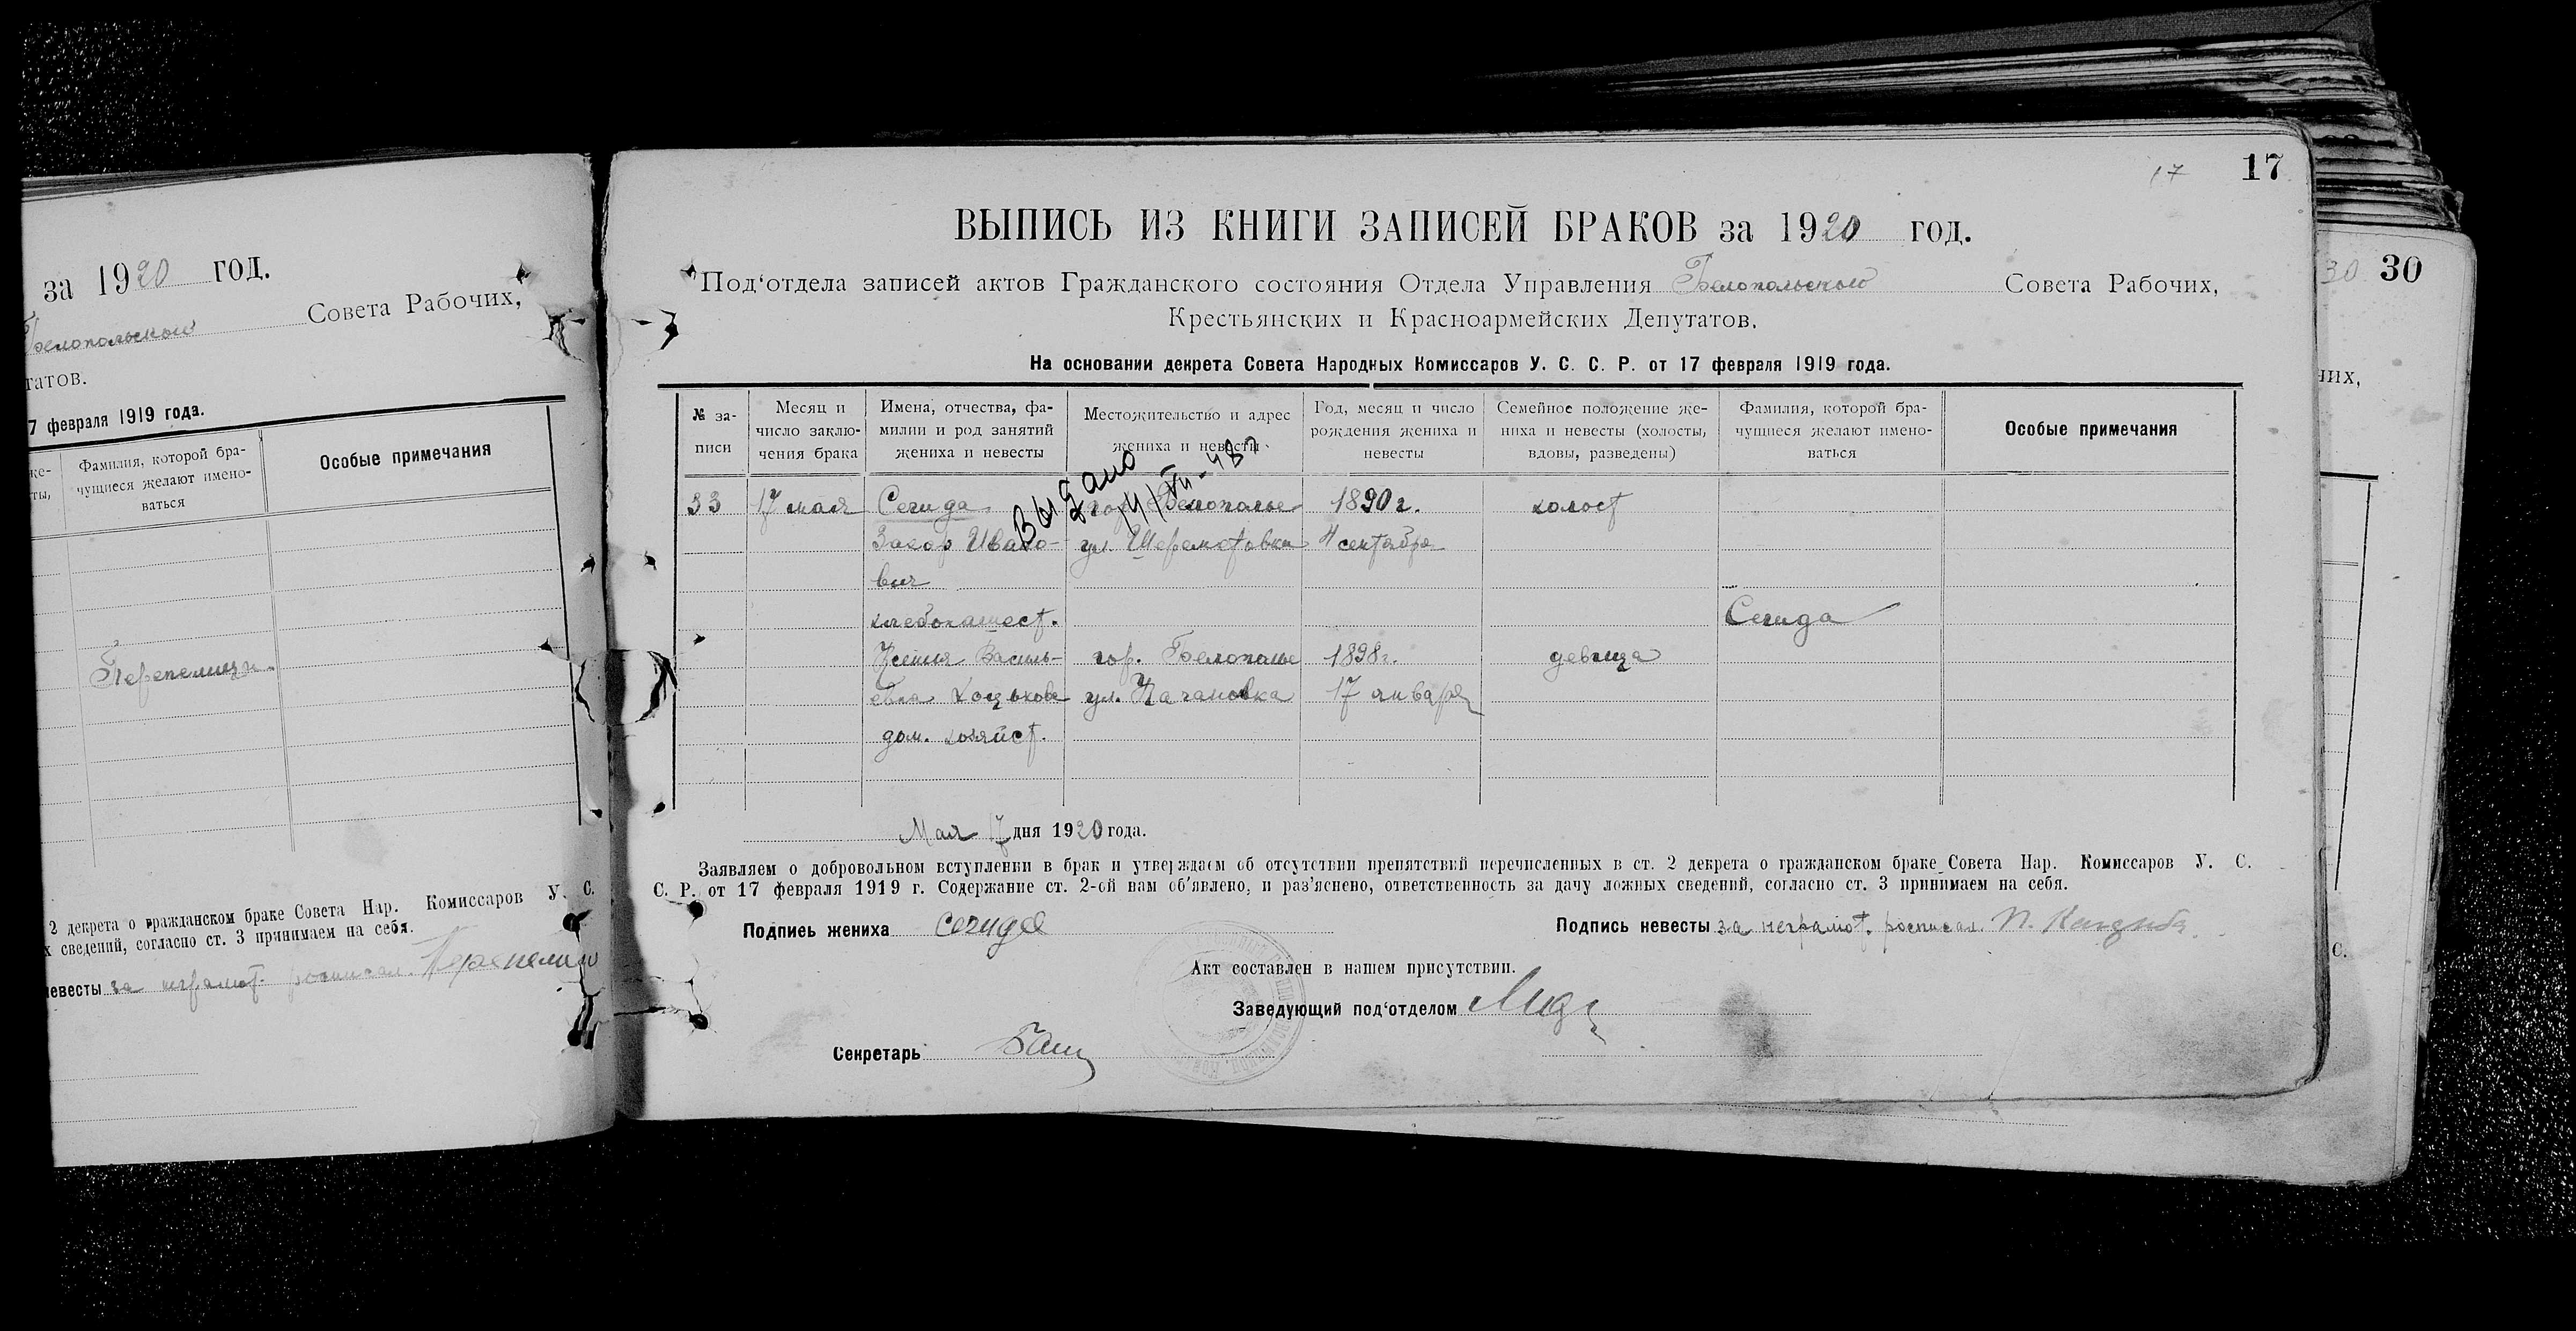 за 1920 год.
Белопольского Совета Рабочих,
татов.
7 февраля 1919 года.
же-
ты,
Фамилия, которой бра-
чущиеся желают имено-
ваться
Особые примечания
Перепелица
2 декрета о гражданском браке Совета Нар. Комиссаров У. С.
х сведений, согласно ст. 3 принимаем на себя.
невесты за неграмот. росписал.
17 17
ВЫПИСЬ ИЗ КНИГИ ЗАПИСЕЙ БРАКОВ за 1920 год.
Под‘отдела записей актов Гражданского состояния Отдела Управления Белопольского Совета Рабочих,
Крестьянских и Красноармейских Депутатов.
На основании декрета Совета Народных Комиссаров У. С. С. Р. от 17 февраля 1919 года.
№ за-
писи
Месяц и
число заклю-
чения брака
Имена, отчества, фа-
милии и род занятий
жениха и невесты
Местожительство и адрес
жениха и невесты
Год, месяц и число
рождения жениха и
невесты
Семейное положение же-
ниха и невесты (холосты,
вдовы, разведены)
Фамилия, которой бра-
чущиеся желают имено-
ваться
Особые примечания
Выдано
33 17 мая Сегида гор. Белополье 1890 г. холост
Ивано- ул. Шереметовка 4 сентября
вич
хлебопашест. Сегида
Ксения Василь- гор. Белополье 1898 г. девица
евна ул. 17 января
дом. хозяйст.
Мая 17 дня 1920 года.
Заявляем о добровольном вступлении в брак и утверждаем об отсутствии препятствий перечисленных в ст. 2 декрета о гражданском браке Совета Нар. Комиссаров У. С.
С. Р. от 17 февраля 1919 г. Содержание ст. 2-ой нам об'явлено, и раз'яснено, ответственность за дачу ложных сведений, согласно ст. 3 принимаем на себя.
Подпись жениха Сегида
Подпись невесты за неграмот. росписал.
Акт составлен в нашем присутствии.
Заведующий под‘отделом
Секретарь
30 30
них,
С.